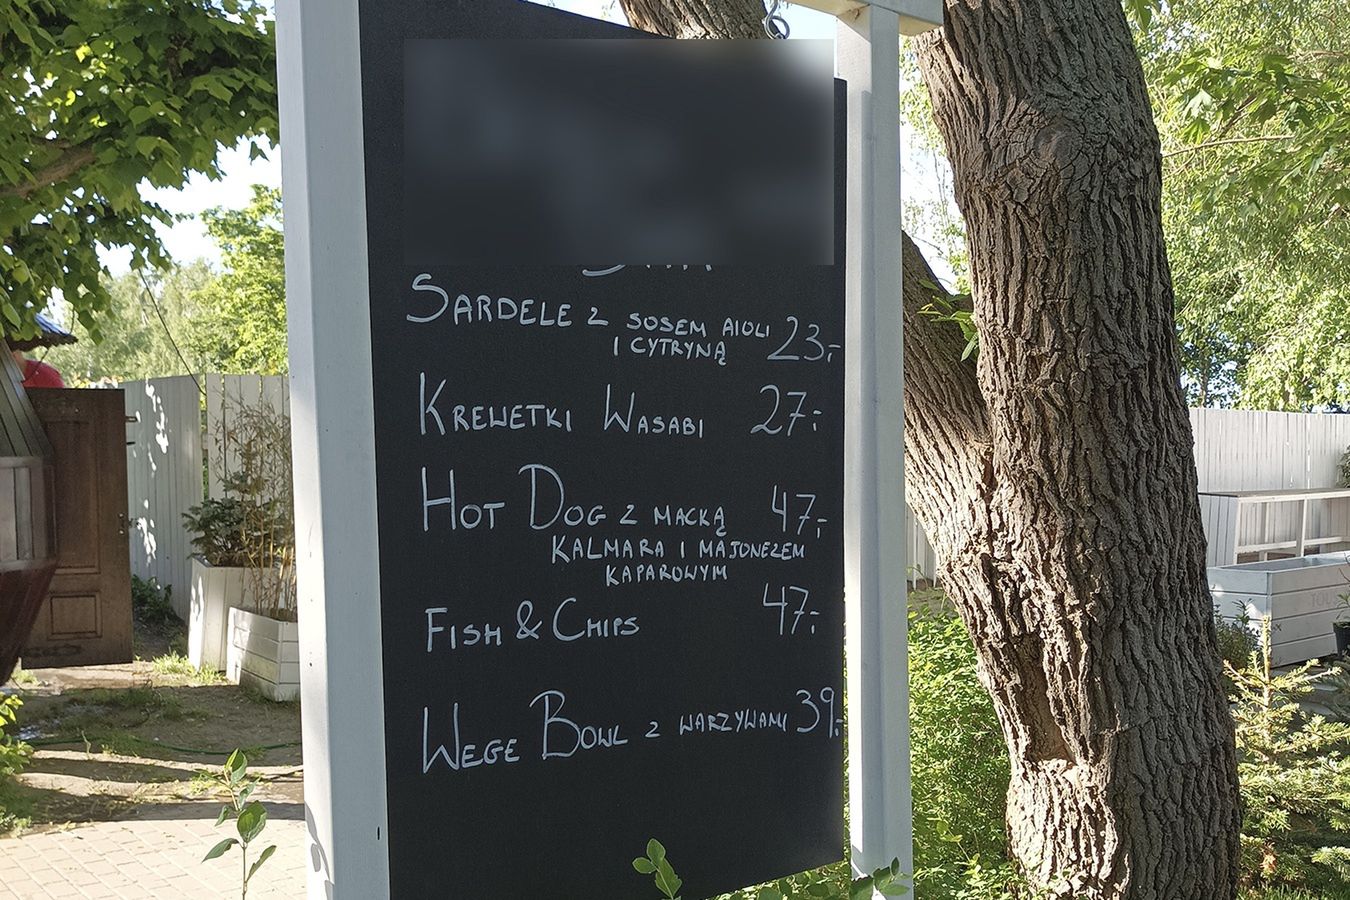 SARDELE Z SOSEM AIOLI 23,-
I CYTRYNĄ
KREWETKI WASABI 27,-
HOT DOG Z MACKĄ 47,-
KALMARA I MAJONEZEM
KAPAROWYM
FISH & CHIPS 47,-
WEGE BOWL Z WARZYWAMI 39,-